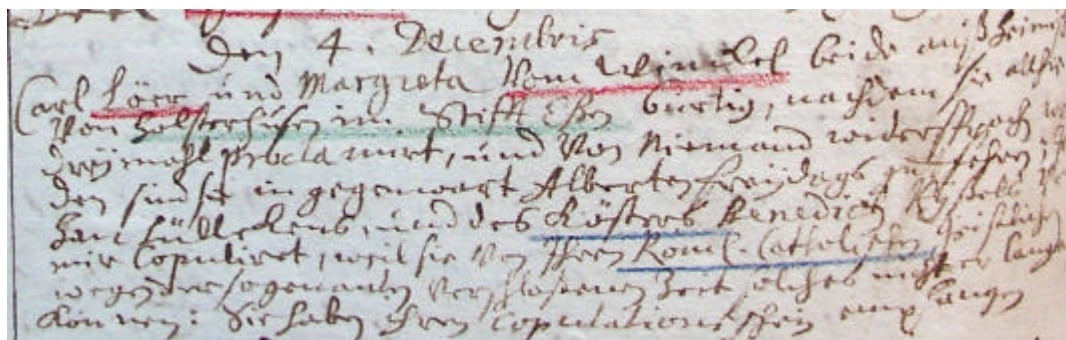 Den 4. Decembris
Carl Lörr und Margreta Vom Winckel beide auß
Von Holsterhusen im Stifft Eßen bürtig, nachdem sie alhir
dreymahl proclamirt, und Von Niemand widersproch
den sind sie in gegenwart Alberten Freydags zu
Han Hüllekens, und des Küsters Benedict
mir Copuliret, weil sie Von Ihren Röml. Catholischen
wegen der sogenanten Verschloßenen Zeit solches nicht erlangen
können: Sie haben Ihren Copulationsschein empfangen